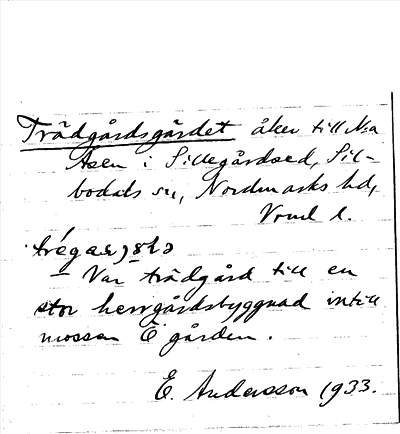 Trädgårdsgärdet åker till N:a
Åsen i Sillegårdsed, Sil-
bodals sn, Nordmarks hd,
Vrml l.
– Var trädgård till en
stor herrgårdsbyggnad intill
mossen Ö gården.
E. Andersson 1933.